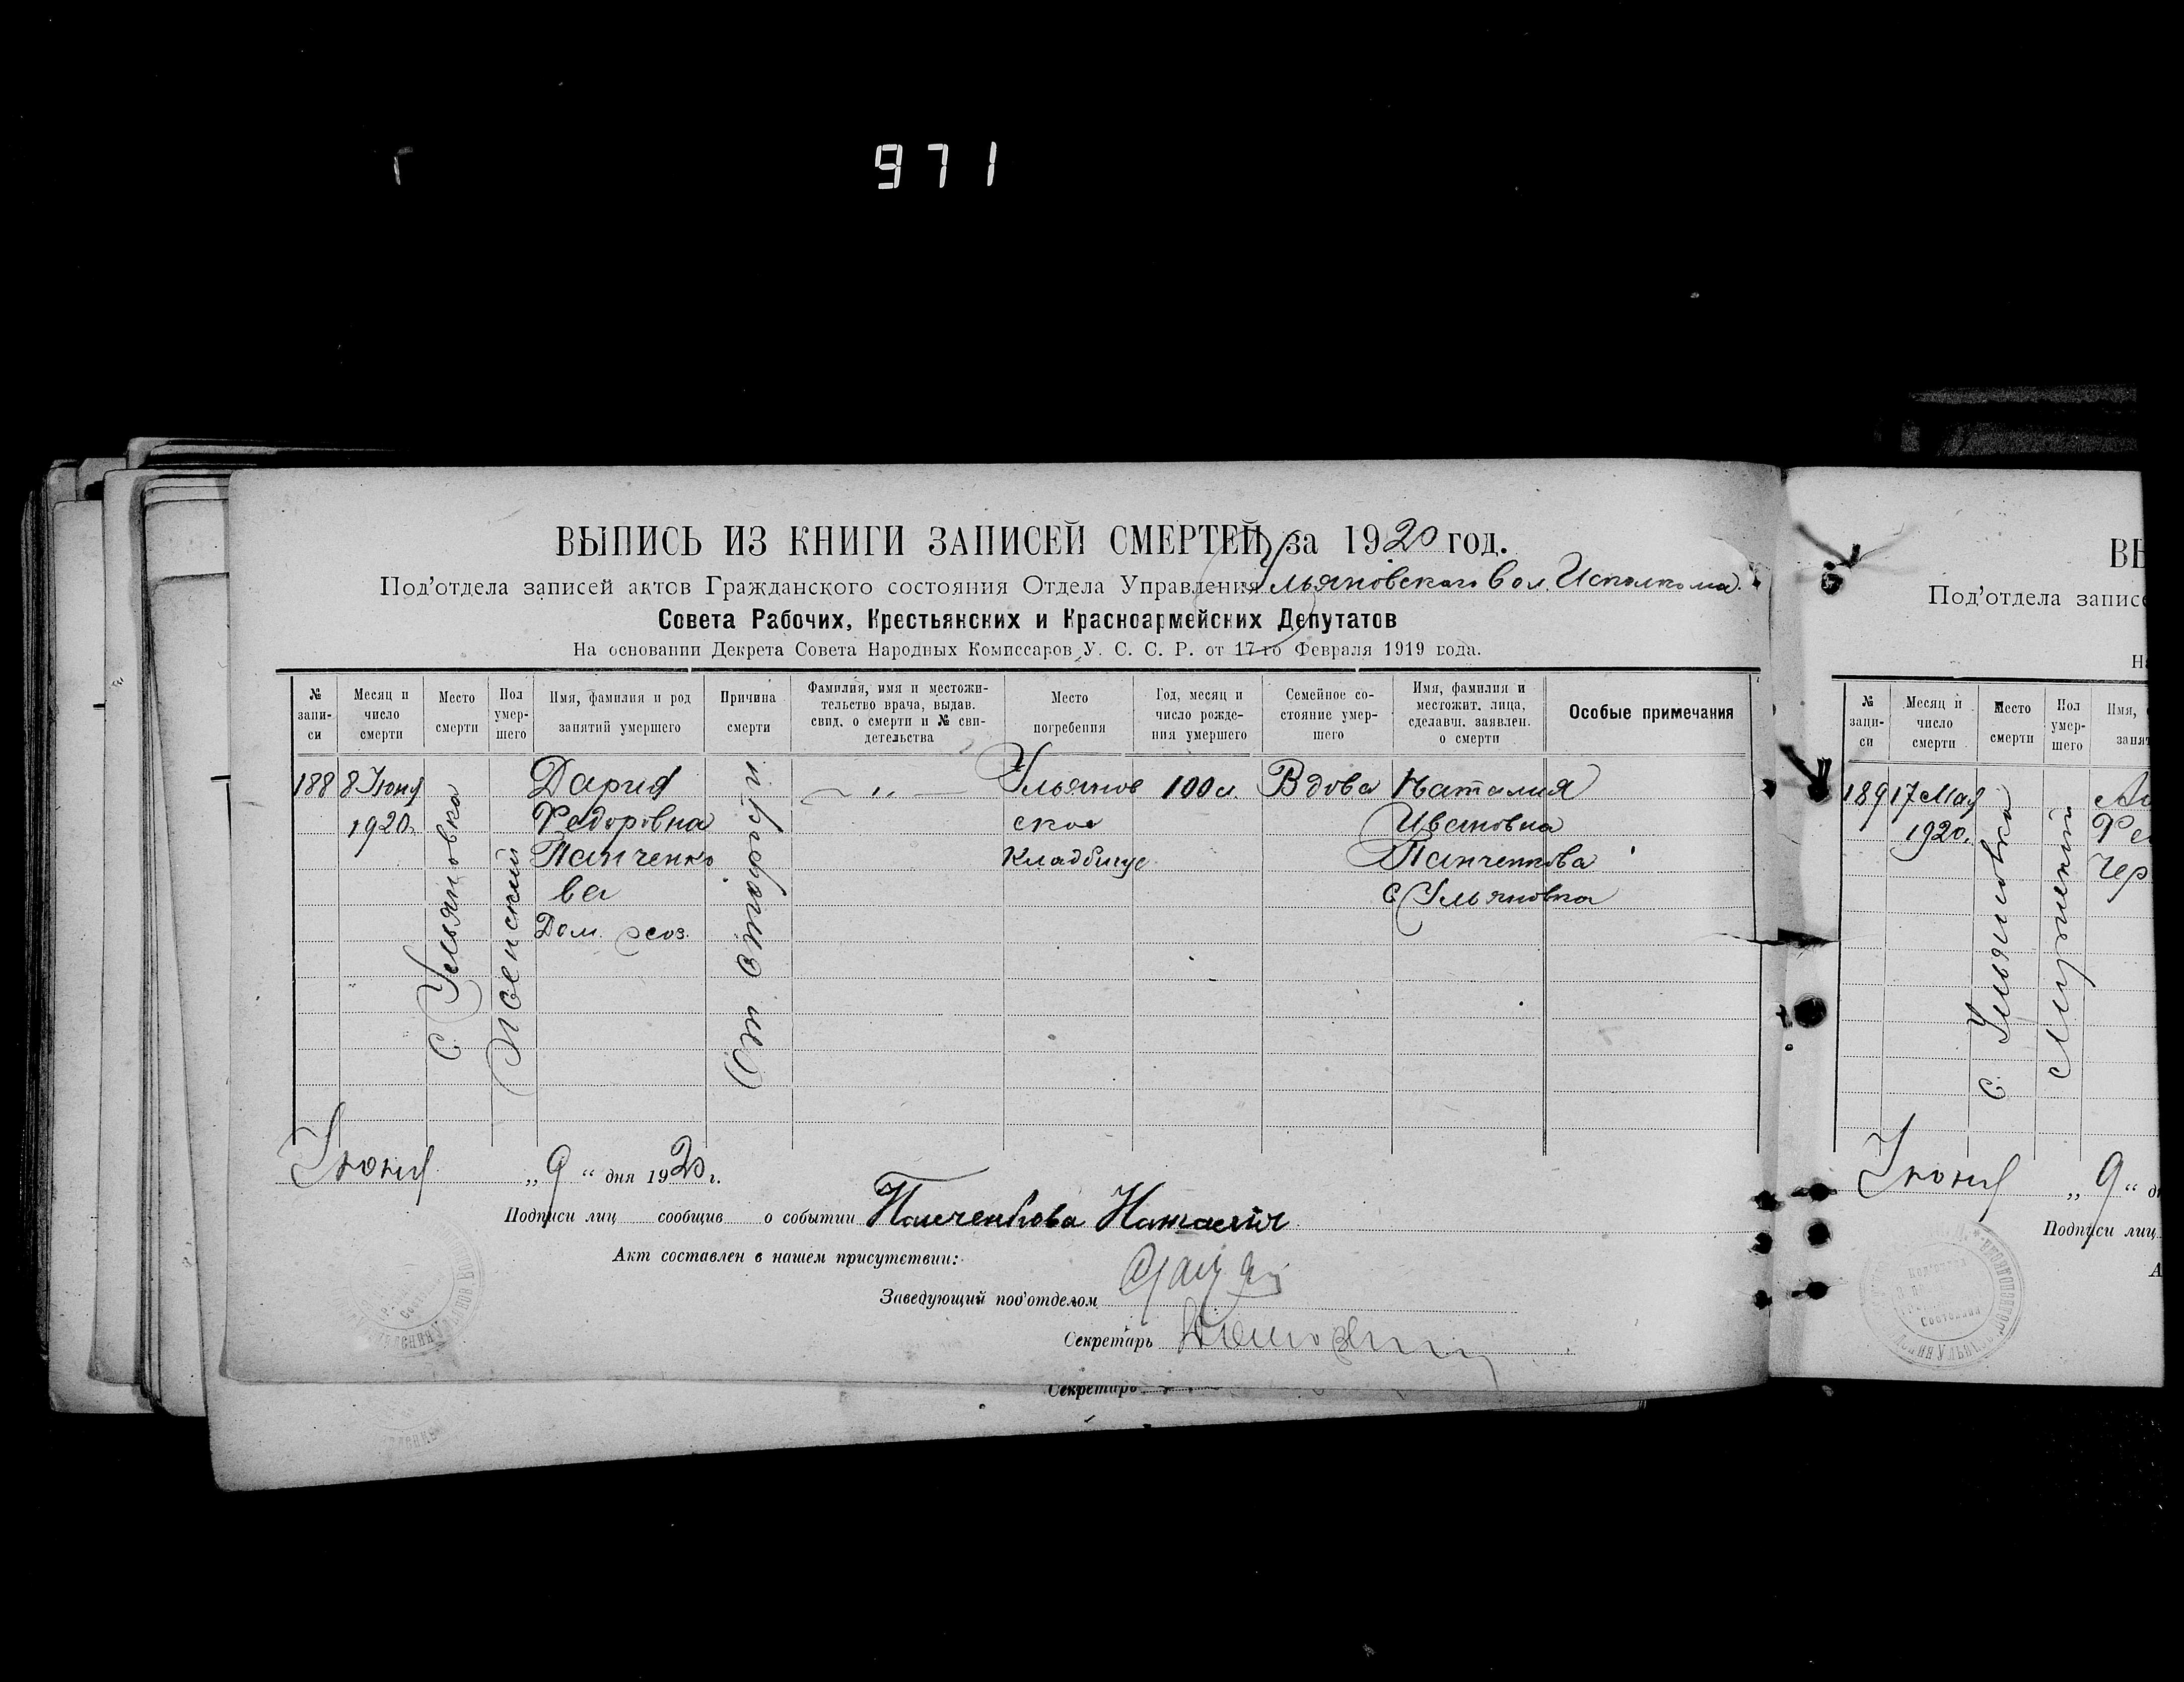 971
ВЫПИСЬ ИЗ КНИГИ ЗАПИСЕЙ СМЕРТЕЙ за 1920 год.
Под'отдела записей актов Гражданского состояния Отдела Управления Ульяновского Вол. Исполкома.
Совета Рабочих, Крестьянских и Красноармейских Депутатов
На основании Декрета Совета Народных Комиссаров У. С. С. Р. от 17-го Февраля 1919 года.
№ запи-си
Месяц и число смерти
Место смерти
Пол умер-шего
Имя, фамилия и род занятий умершего
Причина смерти
Фамилия, имя и местожи-тельство врача, выдав. свид. о смерти и № сви-детельства
Место погребения
Год, месяц и число рожде-ния умершего
Семейное со-стояние умер-шего
Имя, фамилия и местожит. лица, сделавш. заявлен. о смерти
Особые примечания
188
8 Июня
1920.
с Ульяновка
Женский
Дария
Федоровна
Панченко
ва
Дом. хоз.
От старости
Ульянов
ское
кладбище
100 л.
Вдова
Наталия
Ивановна
Панченкова
с Ульяновка
Июня „ 9 “ дня 1920 г.
Подписи лиц сообщив о событии Панченкова Наталия
Акт составлен в нашем присутствии:
Заведующий под'отделом
Секретарь
Секретарь
ВЫ
Под'отдела записе
На
№ запи-си
Месяц и число смерти
Место смерти
Пол умер-шего
Имя,
занят
189
17 Мая
1920.
с Ульяновка
Мужской
Фе
Чер
Июня „ 9 “ д
Подписи лиц
А
Состояния